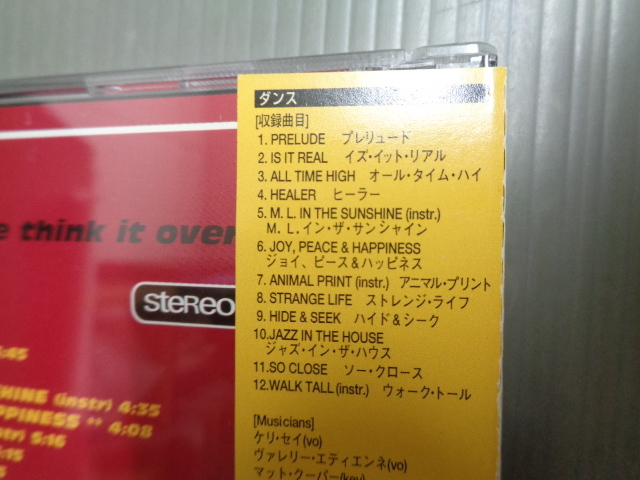 ダンス
[収録曲目]
1. PRELUDE プレリュード
2. IS IT REAL イズ・イット・リアル
3. ALL TIME HIGH オール・タイム・ハイ
4. HEALER ヒーラー
5. M. L. IN THE SUNSHINE (instr.)
M. L. イン・ザ・サンシャイン
6. JOY, PEACE & HAPPINESS
ジョイ、ピース&ハッピネス
7. ANIMAL PRINT (instr.) アニマル・プリント
8. STRANGE LIFE ストレンジ・ライフ
9. HIDE & SEEK ハイド&シーク
10.JAZZ IN THE HOUSE
ジャズ・イン・ザ・ハウス
11.SO CLOSE ソー・クロース
12.WALK TALL (instr.) ウォーク・トール
[Musicians]
ケリ・セイ(vo)
ヴァレリー・エティエンネ(vo)
マット・クーパー(key)
think it over
stereo
:45
SHINE (instr) 4:35
PPINESS ** 4:08
str) 5:16
:15